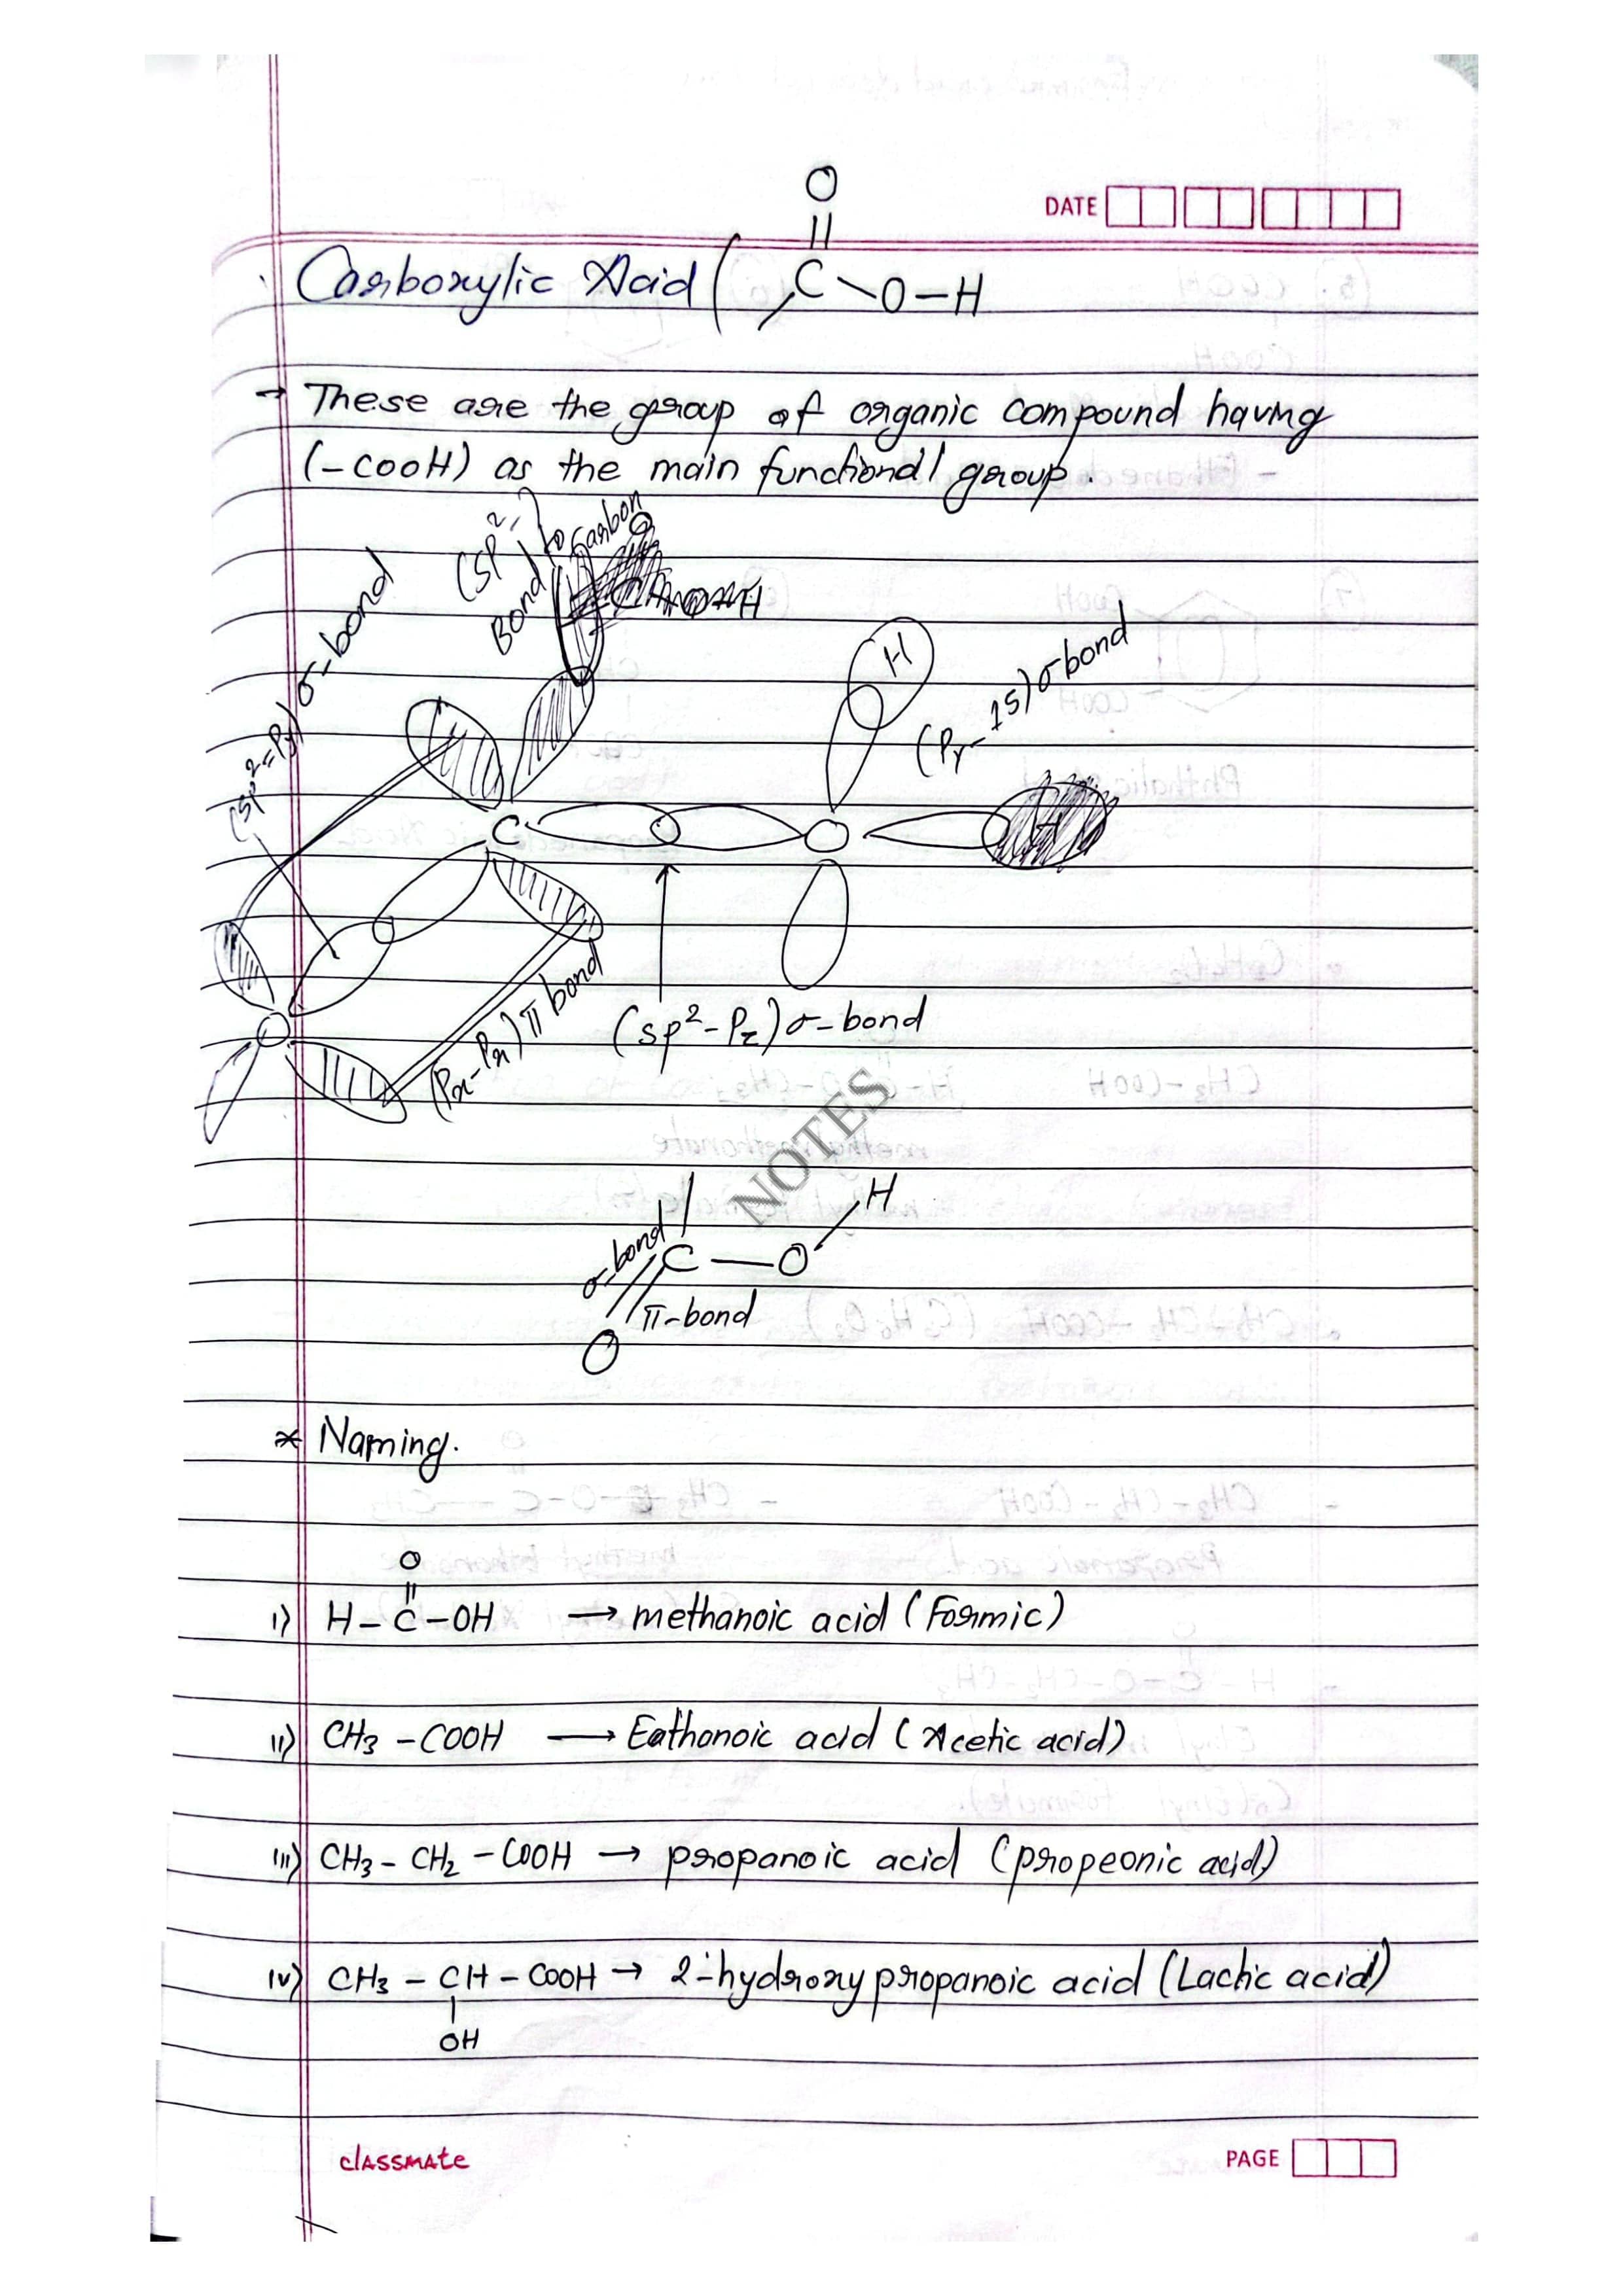 DATE
O
||
Carboxylic Acid ( C-O-H
→ These are the group of organic compound having
(-COOH) as the main functional group.
(sp²-
Bond to Carbon
(sp²-Py) σ-bond
H
(Py-1s) σ bond
C O
O
(Px-Px) π bond
(sp²-Pz) σ-bond
NOTES
H
σ-bond C — O
π-bond
O
* Naming.
O
||
i) H-C-OH → methanoic acid (Formic)
ii) CH3-COOH → Eathonoic acid (Acetic acid)
iii) CH3-CH2-COOH → propanoic acid (propeonic acid)
iv) CH3-CH-COOH → 2-hydroxy propanoic acid (Lactic acid)
|
OH
classmate
PAGE